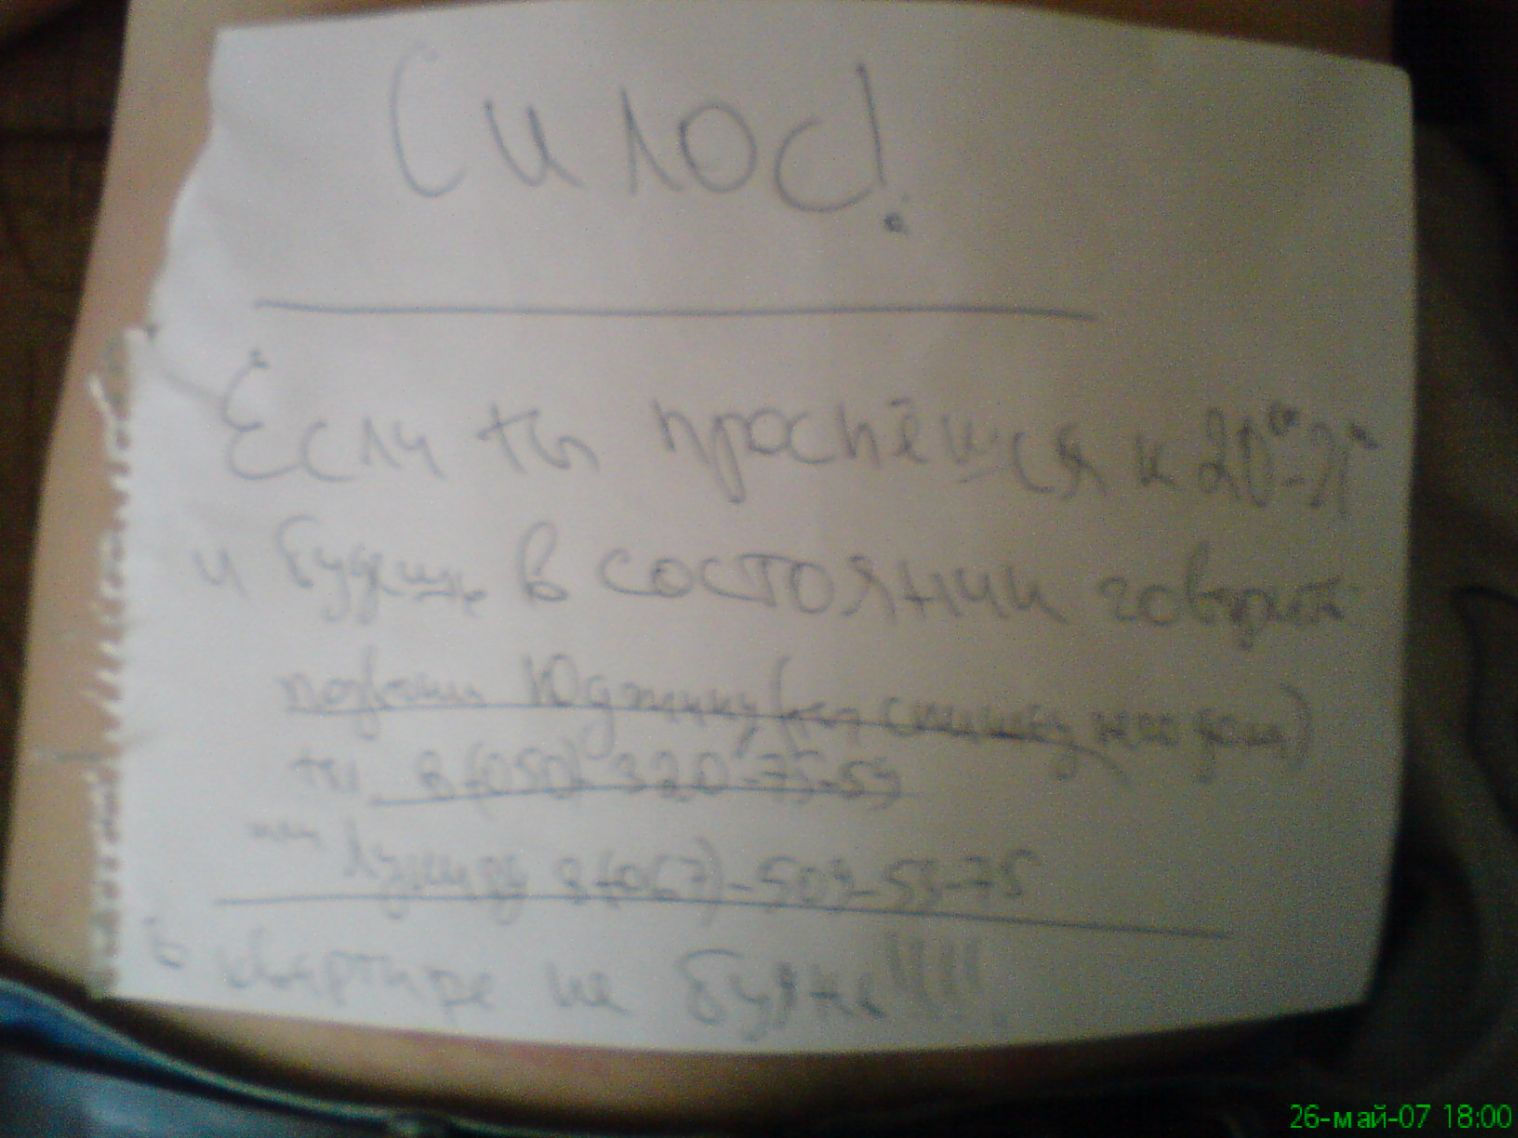 Силос!
Если ты проспёшся к 20⁰⁰-21⁰⁰
и будешь в состоянии говорить
позвони Юджину
ты 8(050)-320-75-59
или 8(067)-509-59-75
в квартире не буянь!!!!
26-май-07 18:00